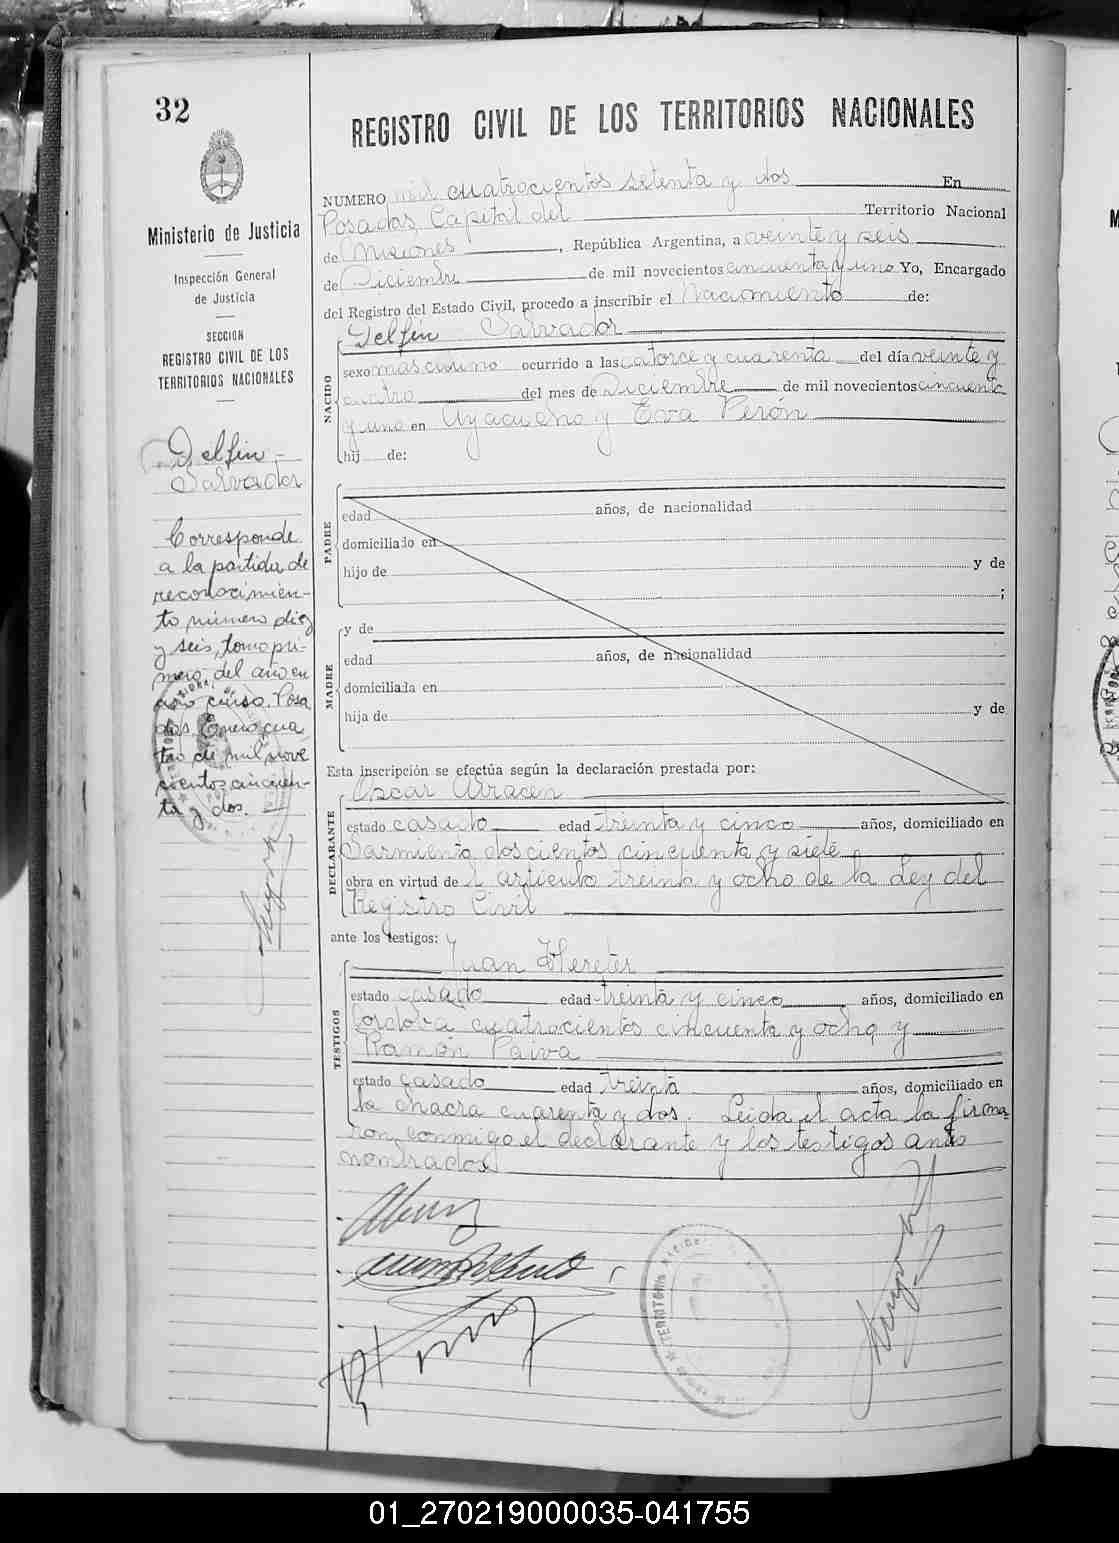 32
Ministerio de Justicia
Inspección General
de Justicia
SECCION
REGISTRO CIVIL DE LOS
TERRITORIOS NACIONALES
Delfin
Salvador
Corresponde
a la partida de
reconocimien-
to número diez
y seis, tomo pri-
mero, del año en
curso. Posa
das, Enero cua
tro de mil nove
cientos cincuen-
ta y dos.
REGISTRO CIVIL DE LOS TERRITORIOS NACIONALES
NUMERO mil cuatrocientos setenta y dos En
Posadas, Capital del Territorio Nacional
de Misiones, República Argentina, a veinte y seis
de Diciembre de mil novecientos cincuenta y uno Yo, Encargado
del Registro del Estado Civil, procedo a inscribir el Nacimiento de:
Delfin Salvador
NACIDO
sexo masculino ocurrido a las catorce y cuarenta del día veinte y
cuatro del mes de Diciembre de mil novecientos cincuenta
y uno en Ayacucho y Eva Perón
hij de:
PADRE
edad años, de nacionalidad
domiciliado en
hijo de y de
;
MADRE
y de
edad años, de nacionalidad
domiciliada en
hija de y de
Esta inscripción se efectúa según la declaración prestada por:
DECLARANTE
Oscar
estado casado edad treinta y cinco años, domiciliado en
Sarmiento doscientos cincuenta y siete
obra en virtud de l artículo treinta y ocho de la Ley del
Registro Civil
ante los testigos:
TESTIGOS
Juan
estado casado edad treinta y cinco años, domiciliado en
Cordova cuatrocientos cincuenta y ocho y
Ramón Paiva
estado casado edad treinta años, domiciliado en
la chacra cuarenta y dos. Leida el acta la firma
ron conmigo el declarante y los testigos ante
nombrados
01_270219000035-041755